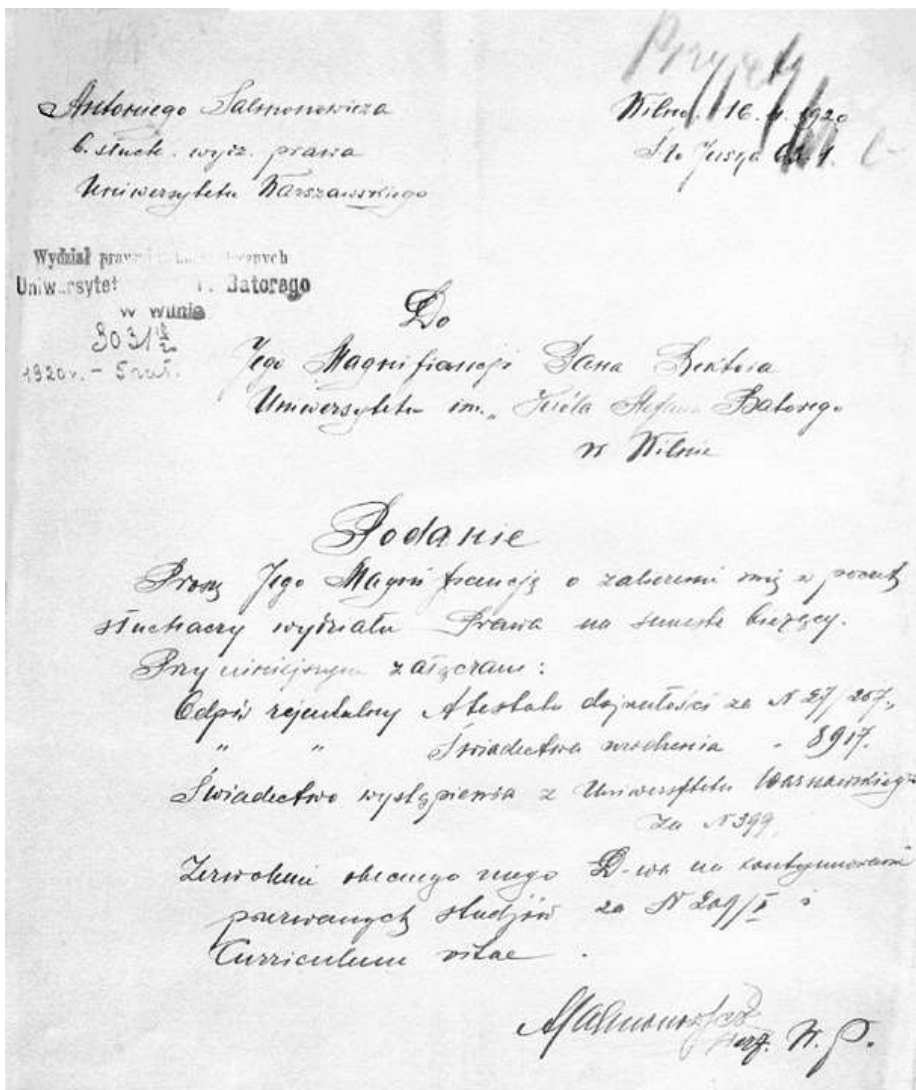 Przyjęty
Antoniego Salmonowicza
b. słuch. wydz. prawa
Uniwersytetu Warszawskiego
Wilno. 16. 1920
Wydział praw
Uniwersytet Batorego
w Wilnie
3031
1920 r.
Do
Jego Magnificencji Pana Rektora
Uniwersytetu im. „Króla Stefana Batorego
w Wilnie
Podanie
Proszę Jego Magnificencję o zaliczenie mię w poczet
słuchaczy wydziału Prawa na semestr bieżący.
Przy niniejszym załączam:
Odpis rejentalny Atestatu dojrzałości za N 27/267.
" " Świadectwa urodzenia " 8917.
Świadectwo wystąpienia z Uniwersytetu Warszawskiego
za N 399
Zezwolenie obecnego mego D-wa na kontynuowanie
przerwanych studjów za N 209/X i
Curriculum vitae.
ASalmonowicz
W. P.